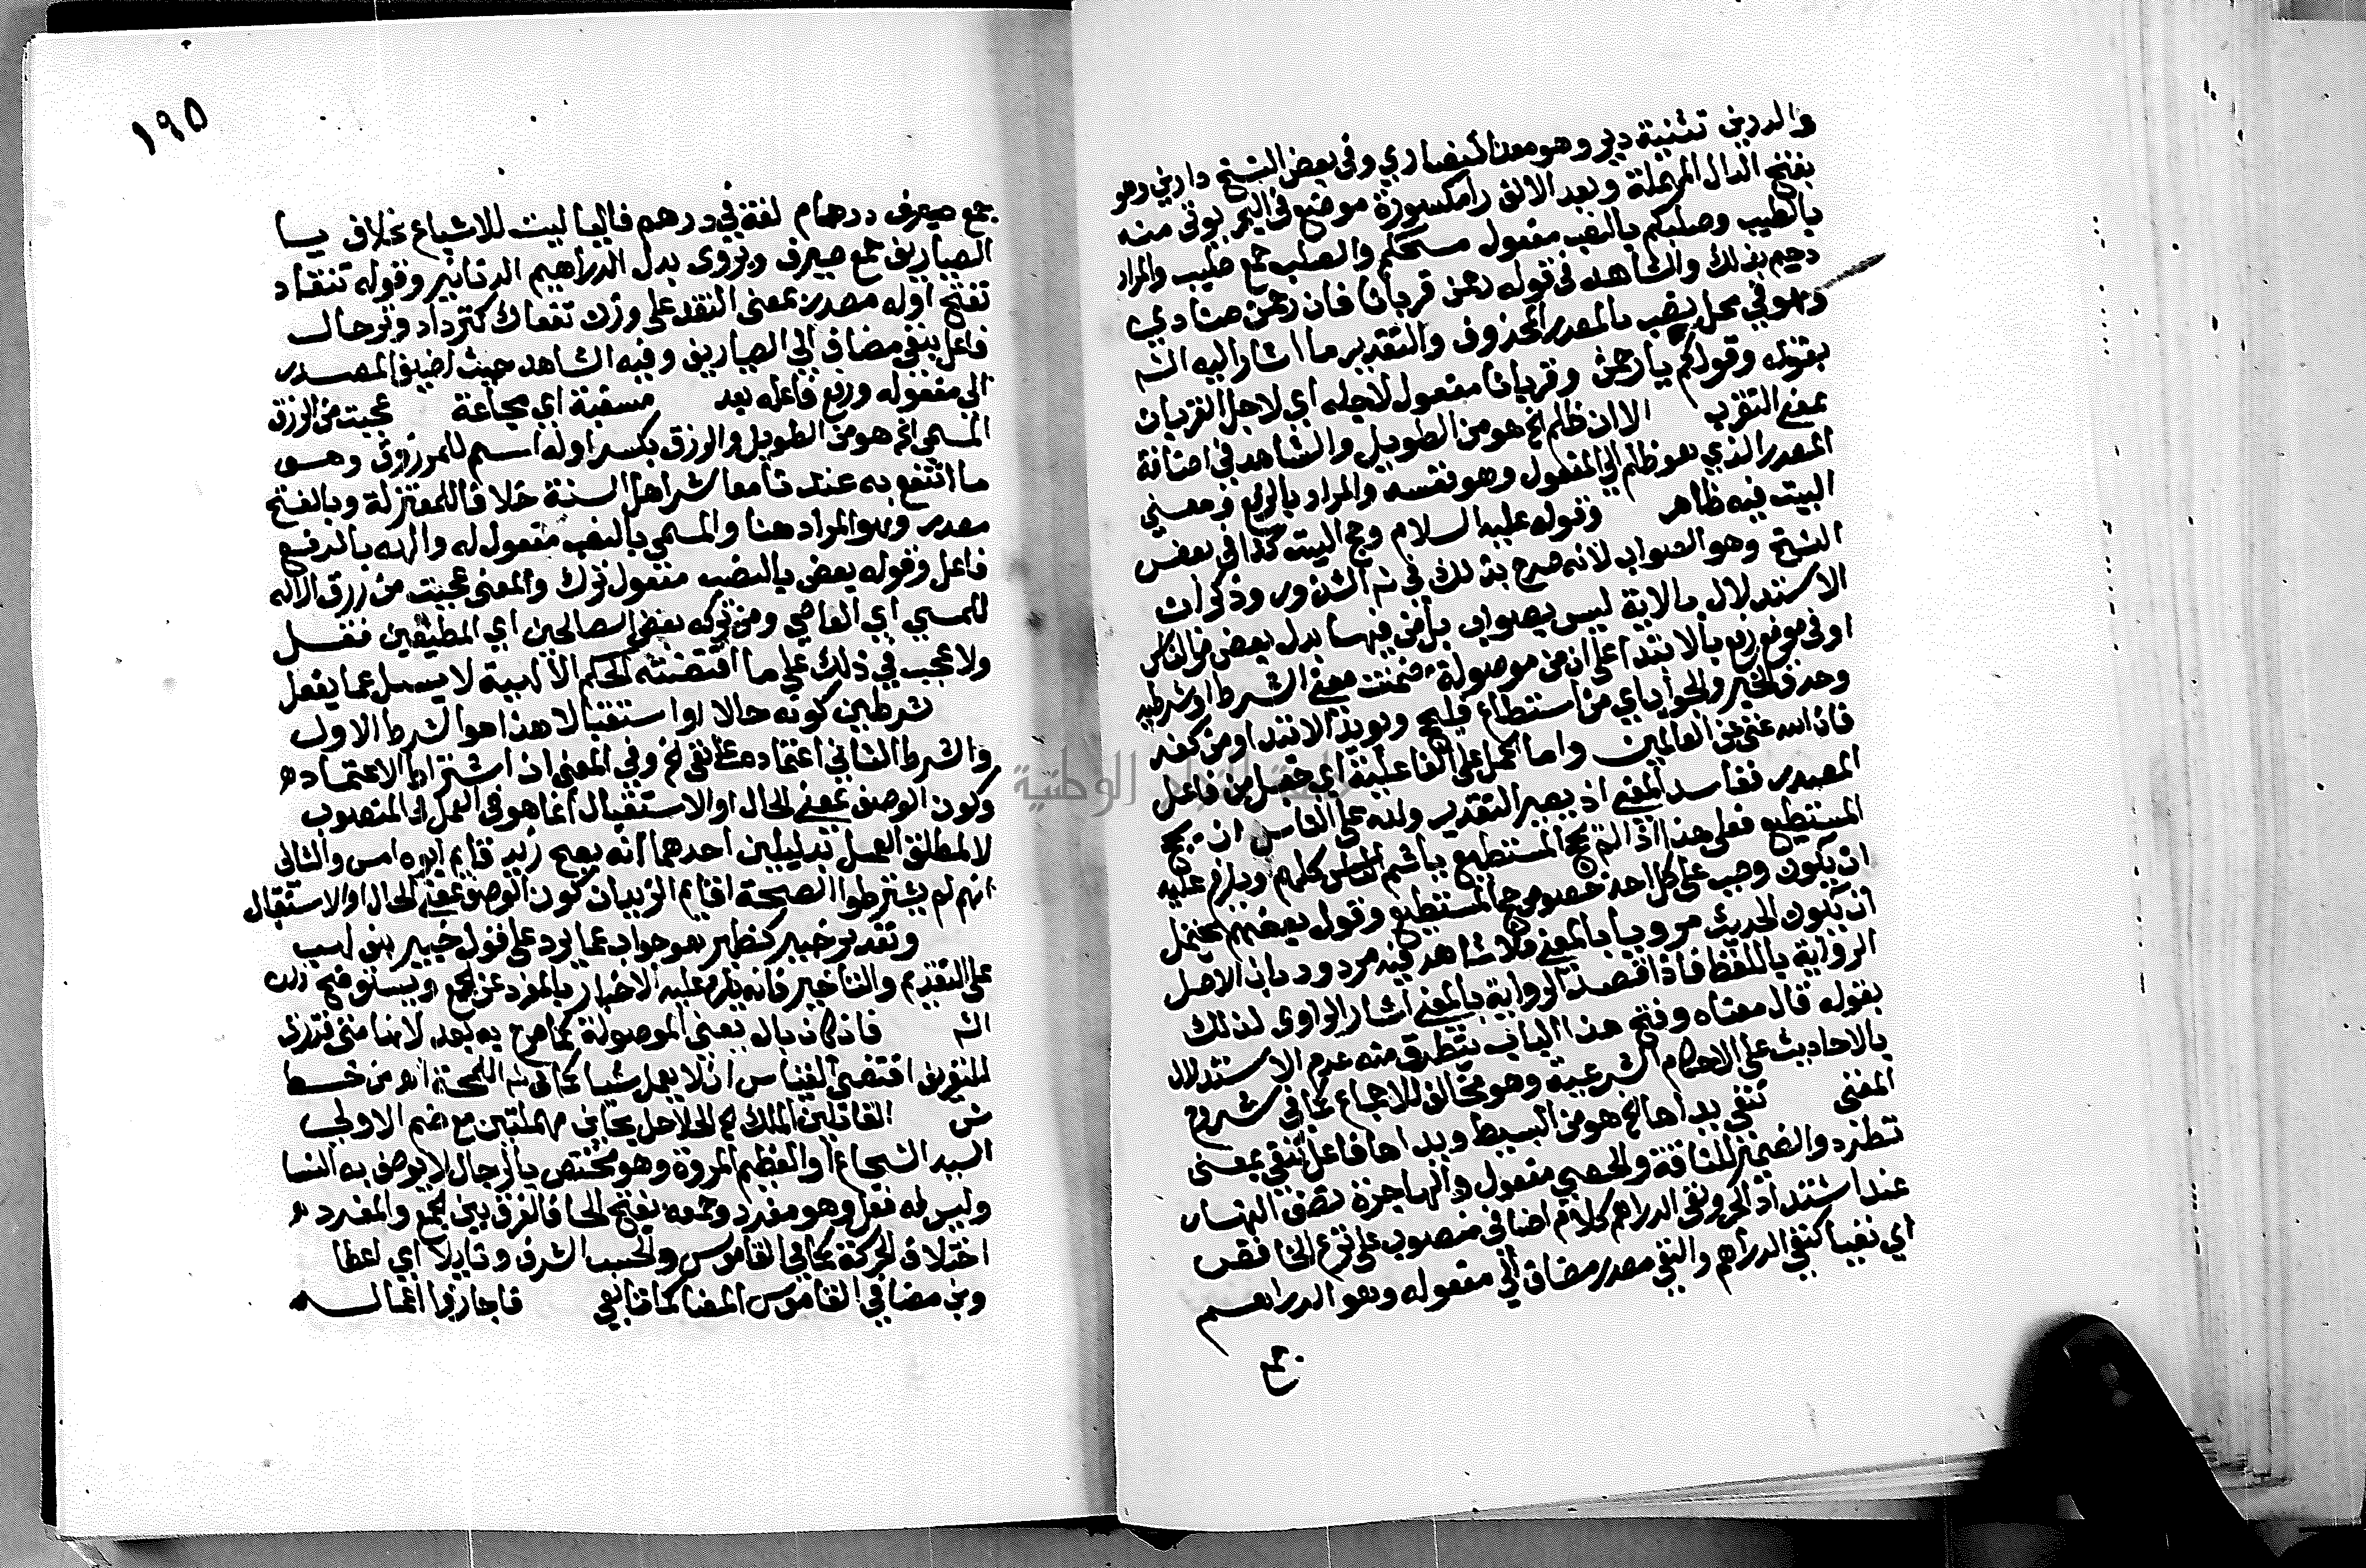 والديرين تثنية دير وهو معبد النصارى وفي بعض النسخ دارين وهو
بفتح الدال المهملة وبعد الالف را مكسورة موضع في البحر يوتى منه
بالطيب وصلبكم بالنصب مفعول مسحكم والصلب جمع صليب والمراد
بذلك والشاهد في قوله رحمن قربانا فان رحمن منادي
وهو في محل نصب بالمصدر المحذوف والتقدير ما اشار اليه الش
بقوله وقولكم يا رحمن وقربانا مفعول لاجله اي لاجل القربان
بمعنى التقرب الا ان ظلم الخ هو من الطويل والشاهد في اضافة
المصدر الذي هو ظلم الى المفعول وهو نفسه والمراد بالرفع ومعنى
البيت فيه ظاهر وقوله عليه السلام وحج البيت كذا في بعض
النسخ وهو الصواب لانه صرح بذلك في ش الشذور وذكر ان
الاستدلال بالاية ليس بصواب بل من فيها بدل بعض من الناس
او في موضع رفع بالابتدا على ان من موصولة ضمنت معنى الشرط او شرطية
وحذف الخبر والجواب اي من استطاع فليحج ويويد الابتدا ومن كفر
فان الله غني عن العالمين واما الحمل على الفاعلية اي من فاعل
المصدر ففاسد المعنى اذ يصير التقدير ولله على الناس ان يحج
المستطيع فعلى هذا اذا لم يحج المستطيع ياثم الناس كلهم ويلزم عليه
ان يكون وجب على كل احد خصوص حج المستطيع وقول بعضهم يحتمل
ان يكون الحديث مرويا بالمعنى فلا شاهد فيه مردود بان الاصل
الرواية باللفظ فاذا قصد الرواية بالمعنى اشار الراوي لذلك
بقوله قال معناه وفتح هذا الباب يتطرق منه عدم الاستدلال
بالاحاديث على الاحكام الشرعية وهو مخالف للاجماع كما في شروح
المغني تنفي يداها الخ هو من البسيط ويداها فاعل تنفي بمعنى
تطرد والضمير للناقة والحصى مفعول والهاجرة نصف النهار
عند اشتداد الحر ونفي الدراهم كلام اضافي منصوب على نزع الخافض
اي نفيا كنفي الدراهم والنفي مصدر مضاف الى مفعوله وهو الدراهم
جمع
١٩٥
جمع صيرف درهام لغة في درهم فاليا ليست للاشباع بخلاف يا
الصياريف جمع صيرف ويروى بدل الدراهيم الدنانير وقوله تنقاد
تفتح اوله مصدر بمعنى النقد على وزن تفعال كترداد وترحال
فاعل بنفي مضاف الى الصياريف وفيه الشاهد حيث اضيف المصدر
الى مفعوله ورفع فاعله بعد مسغبة اي مجاعة عجبت من الرزق
المسمي الخ هو من الطويل والرزق بكسر اوله اسم للمرزوق وهو
ما انتفع به عندنا معاشر اهل السنة خلافا للمعتزلة وبالفتح
مصدر وهو المراد هنا والمسمي بالنصب مفعول له والهه بالرفع
فاعل وقوله بعض بالنصب مفعول ترك والمعنى عجبت من رزق الاله
للمسي اي العاصي ومن تركه بعض الصالحين اي المطيعين فقل
ولا عجب في ذلك على ما اقتضته الحكم الالهية لا يسل عما يفعل
شرطين كونه حالا او استقبالا هذا هو الشرط الاول
والشرط الثاني اعتماده على نفي الخ وفي المغني ان اشتراط الاعتماد
وكون الوصف بمعنى الحال او الاستقبال انما هو في العمل في المنصوب
لا لمطلق العمل بدليلين احدهما انه يصح زيد قايم ابوه امس والثاني
انهم لم يشترطوا لصحة اقايم الزيدان كون الوصف بمعنى الحال او الاستقبال
وتقدير خبير كظهير هو جواب عما يرد على قول خبير بنو لهب
على التقديم والتاخير فانه يلزم عليه الاخبار بالمفرد عن الجمع ويستوضح ذلك
الش فان كان بال يعني الموصولة كما صرح به بعد لانها متى
للتعريف اقتضى القياس ان لا يعمل شيا كما في ش اللمحة اه من خط
ش القاتلين الملك الخ الحلاحل بحائين مهملتين مع ضم الاولى
السيد الشجاع او العظيم المروة وهو مختص بالرجال لا يوصف به النسا
وليس له فعل وهو مفرد وجمعه بفتح الحا فالفرق بين الجمع والمفرد
اختلاف الحركة كما في القاموس والحسب الشرف ونايلا اي عطا
وفي القاموس فاجازوا اعماله